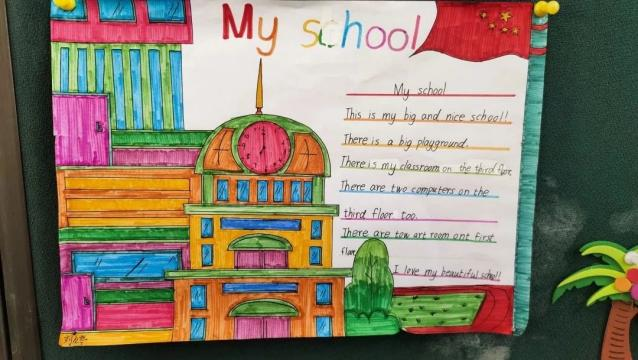 My school
My school
This is my big and nice school!
There is a big playground.
There is my classroom on the third floor.
There are two computers on the
third floor too.
There are tow art room ont first
floor
I love my beautiful school!